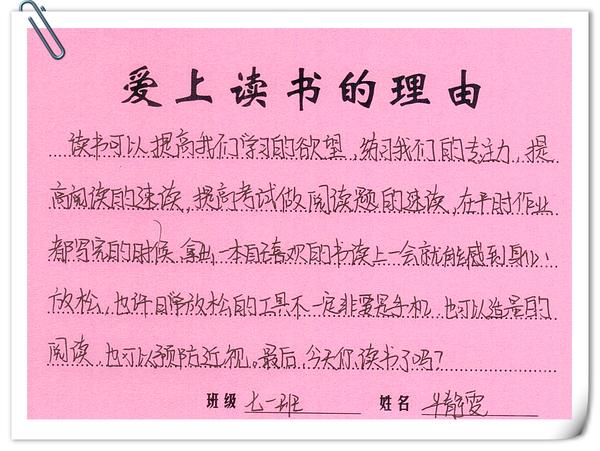 爱上读书的理由
读书可以提高我们学习的欲望,练习我们的专注力,提
高阅读的速读,提高考试做阅读题的速读,在平时作业
都写完的时候,拿出一本自己喜欢的书读上一会就能感到身心
放松,也许日常放松的工具不一定非要是手机,也可以适量的
阅读,也可以预防近视。最后,今天你读书了吗?
班级 七一班 姓名 静雯